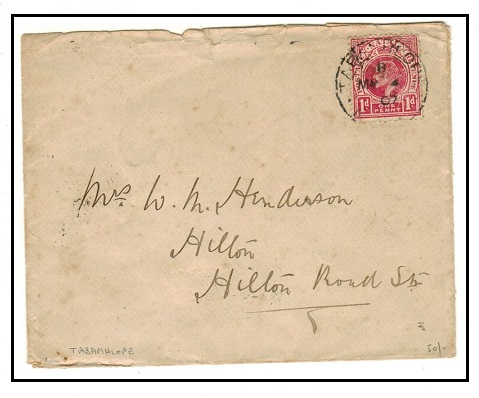 B
67
1d ONE PENNY 1d
Mrs W. M. Henderson
Hilton
Hilton Road Stn
TABAMHLOPE
50/-